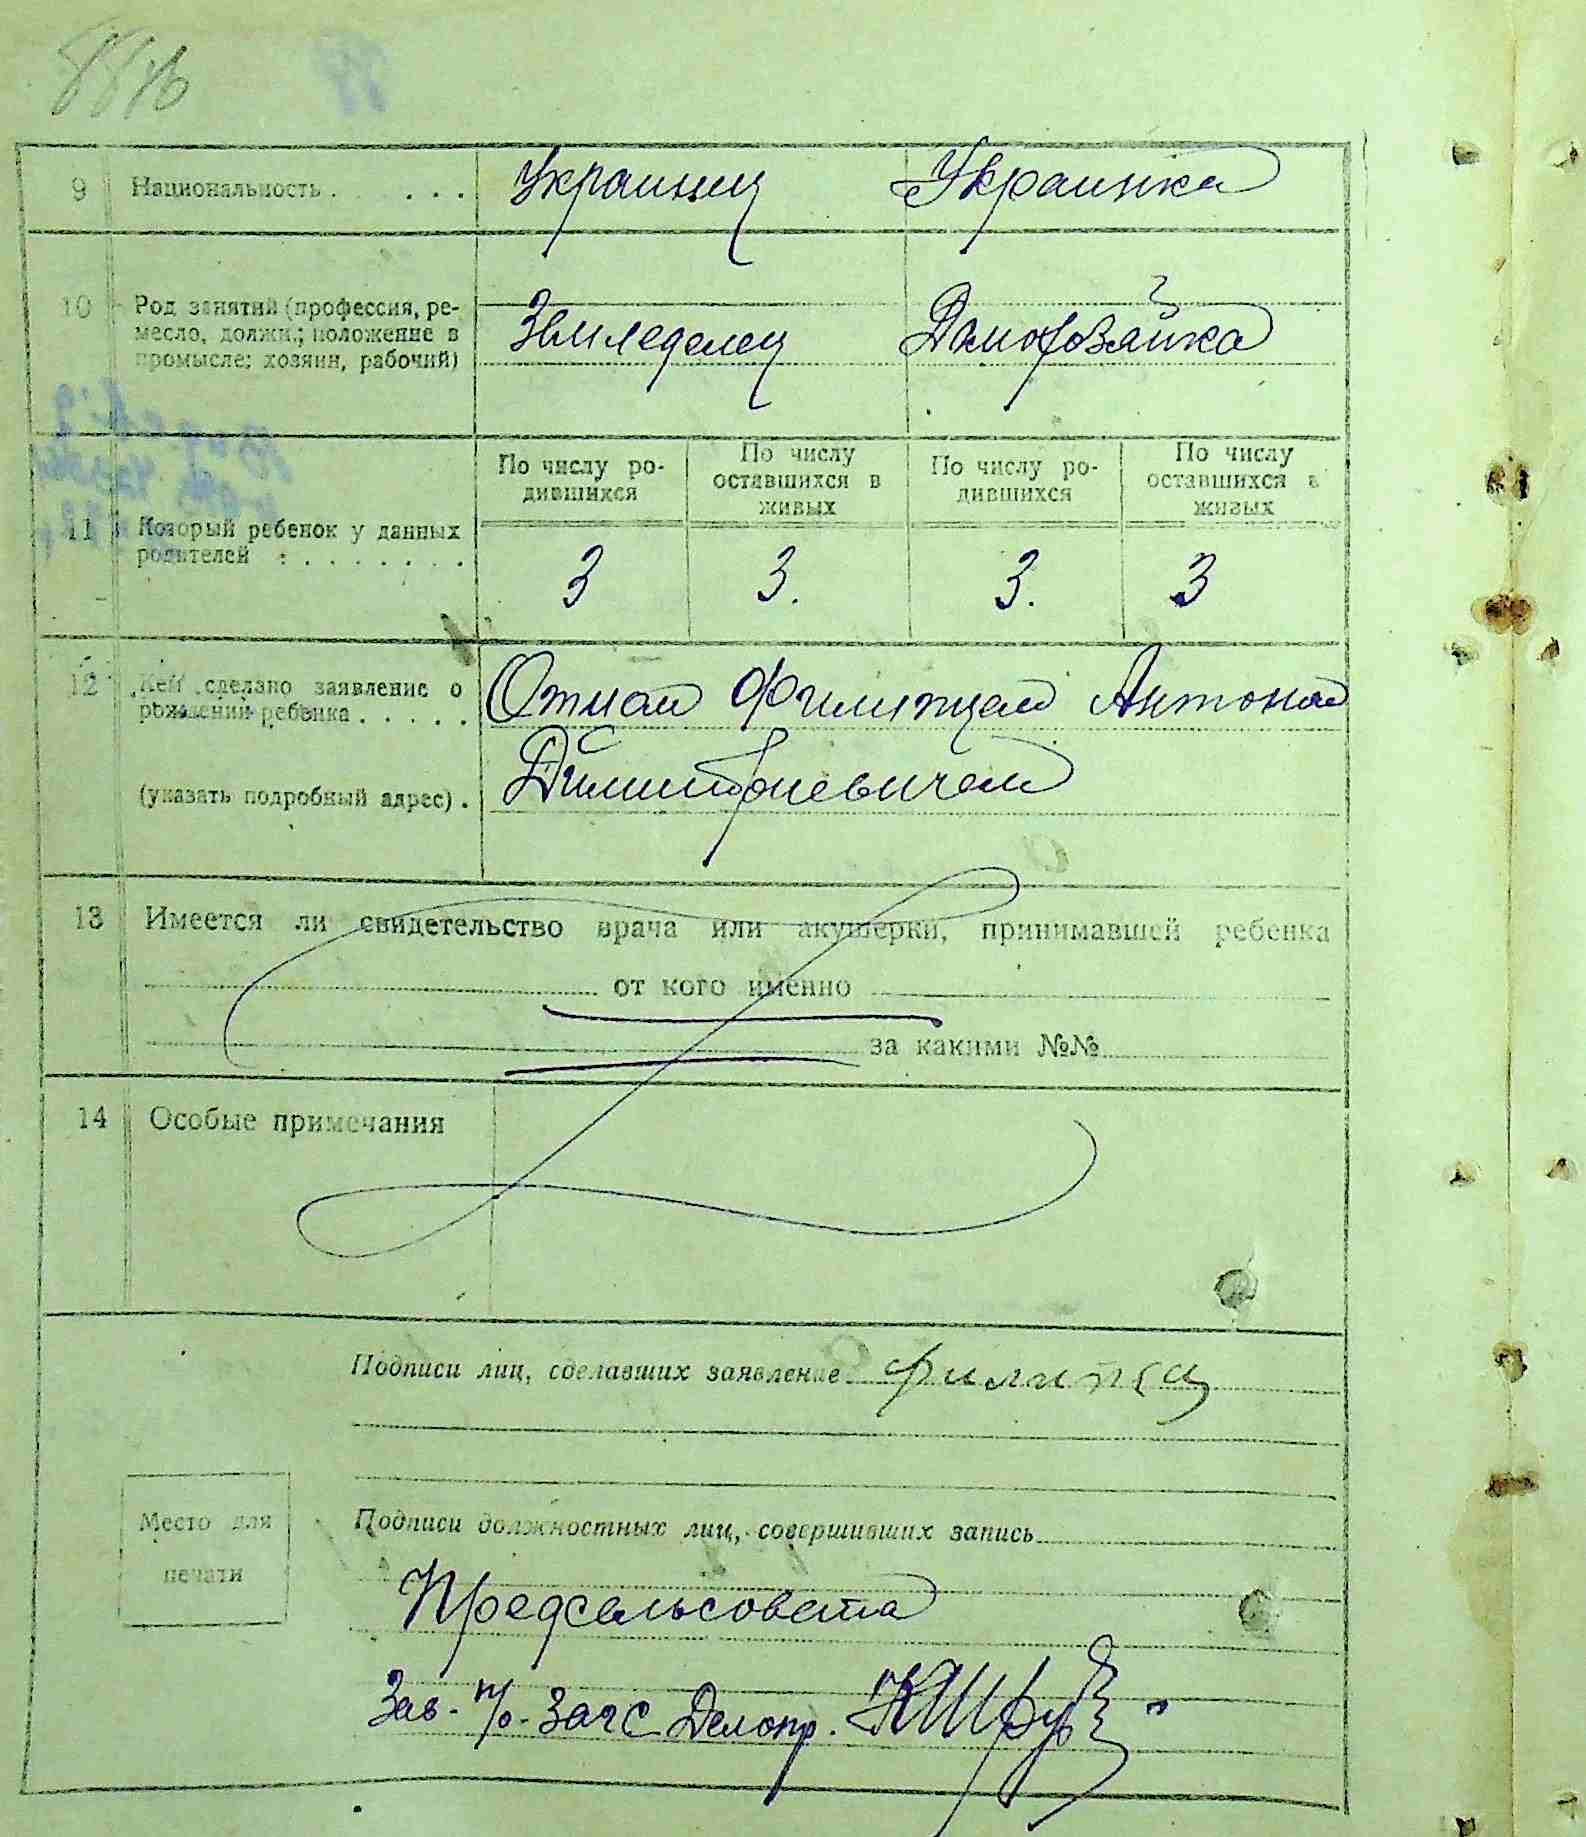 9 Национальность. . . . Украинец Украинка
10 Род занятий (профессия, ре-
месло, должн.; положение в
промысле: хозяин, рабочий)
Земледелец Домохозяйка
11 Который ребенок у данных
родителей : . . . . . . .
По числу ро-
дившихся
По числу
оставшихся в
живых
По числу ро-
дившихся
По числу
оставшихся в
живых
3 3. 3. 3
12 Кем сделано заявление о
рождении ребенка . . . . .
(указать подробный адрес) .
Отцом Филипцем Антоном
Димитриевичем
13 Имеется ли свидетельство врача или акушерки, принимавшей ребенка
от кого именно
за какими №№
14 Особые примечания
Подписи лиц, сделавших заявление Филипец
Место для
печати
Подписи должностных лиц, совершивших запись
Предсельсовета
Зав. п/о. Загс Делопр.